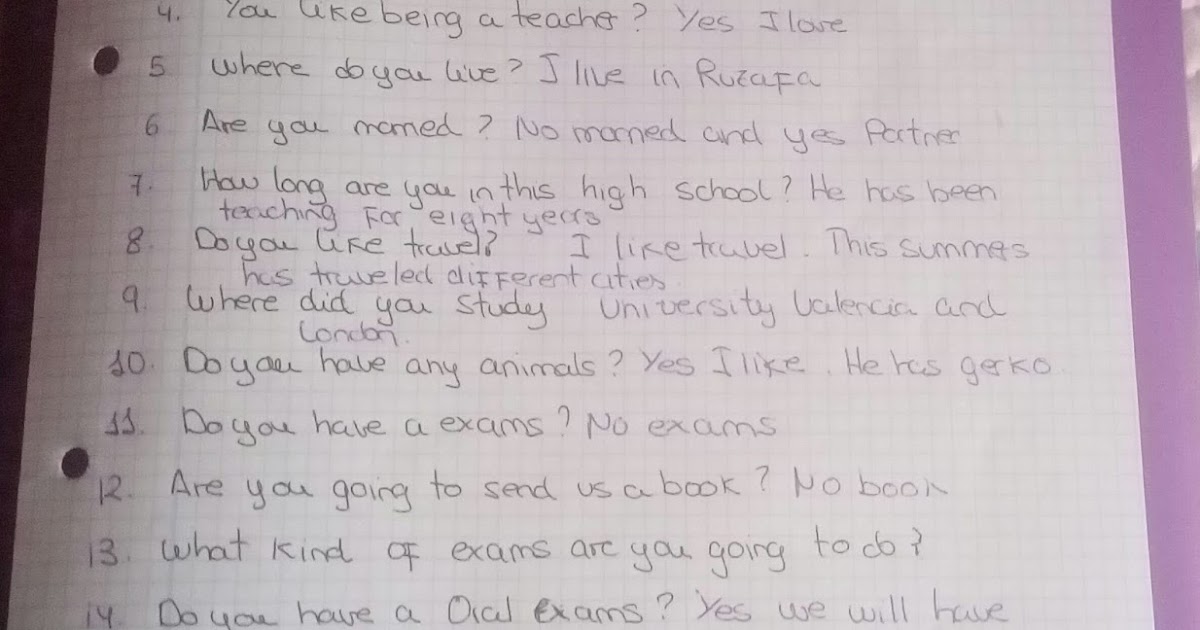 4. You like being a teacher? Yes I love
5 Where do you live? I live in Ruzafa
6 Are you married? No married and yes Partner
7. How long are you in this high school? He has been
teaching For eight years
8. Do you like travel? I like travel. This summers
has traveled different cities.
9. Where did you study University Valencia and
London.
10. Do you have any animals? Yes I like. He has gerko.
11. Do you have a exams? No exams
12. Are you going to send us a book? No book
13. What kind of exams are you going to do?
14. Do you have a Oral exams? Yes we will have